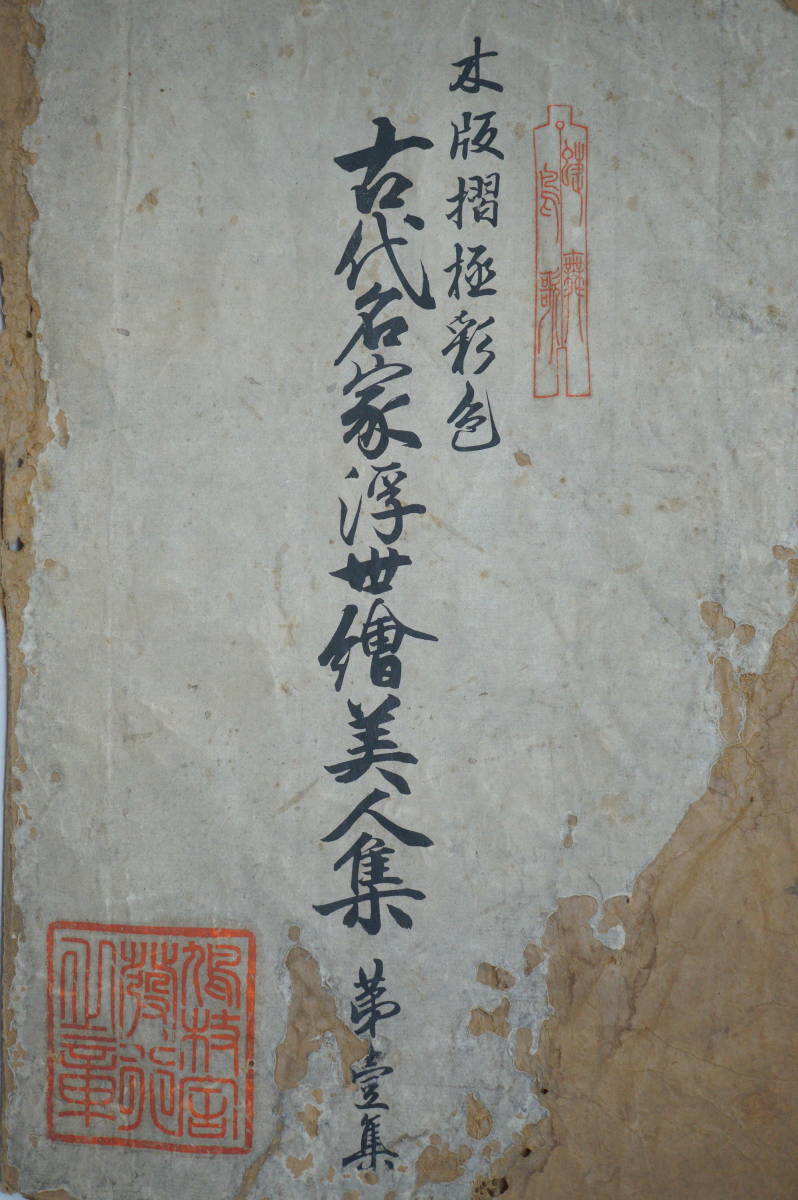 木版摺極彩色
古代名家浮世繪美人集 第壹集